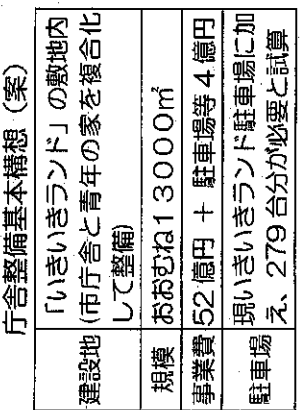 庁舎整備基本構想（案）
建設地
「いきいきランド」の敷地内
(市庁舎と青年の家を複合化
して整備)
規模
おおむね13000㎡
事業費
52億円 ＋ 駐車場等4億円
駐車場
現いきいきランド駐車場に加
え、279台分が必要と試算